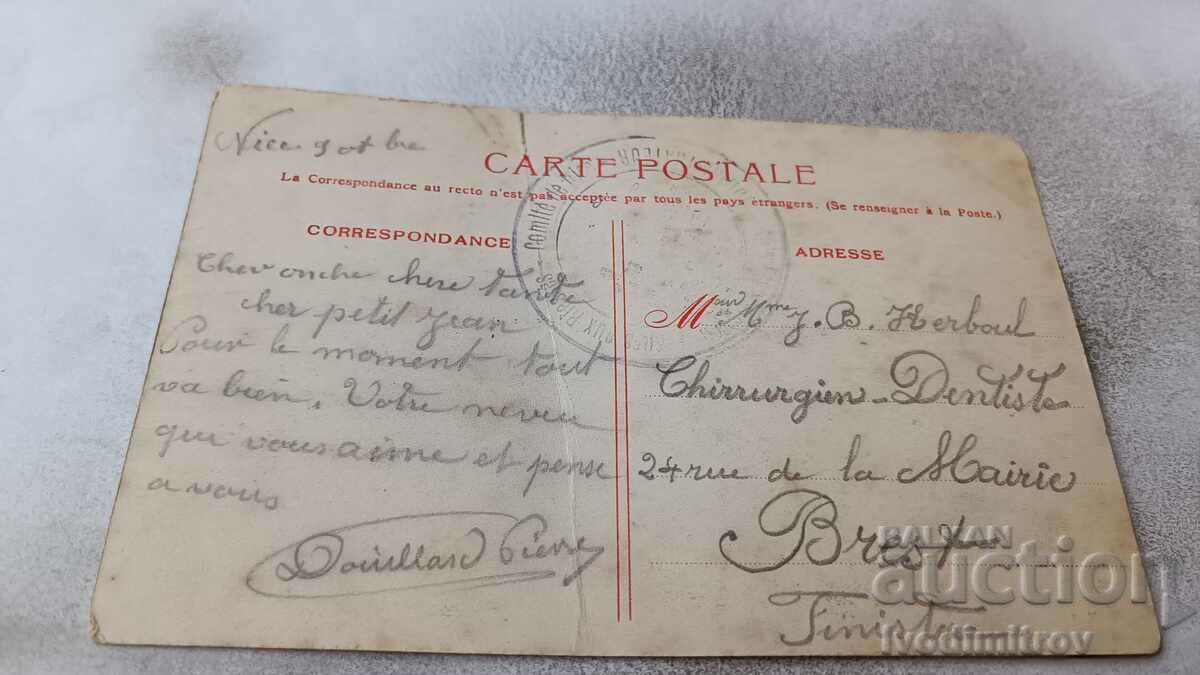 Nice 9 ot bre
CARTE POSTALE
La Correspondance au recto n'est pas acceptée par tous les pays étrangers. (Se renseigner à la Poste.)
CORRESPONDANCE
Cher oncle chere tante
cher petit Jean
Pour le moment tout
va bien. Votre neveu
qui vous aime et pense
a vous
Douillard Pierre
Comité de
ADRESSE
M eur et Mme J. B. Kerboul
Chirrurgien-Dentiste
24 rue de la Mairie
Brest
Finistère
BALKAN
auction
ivodimitrov